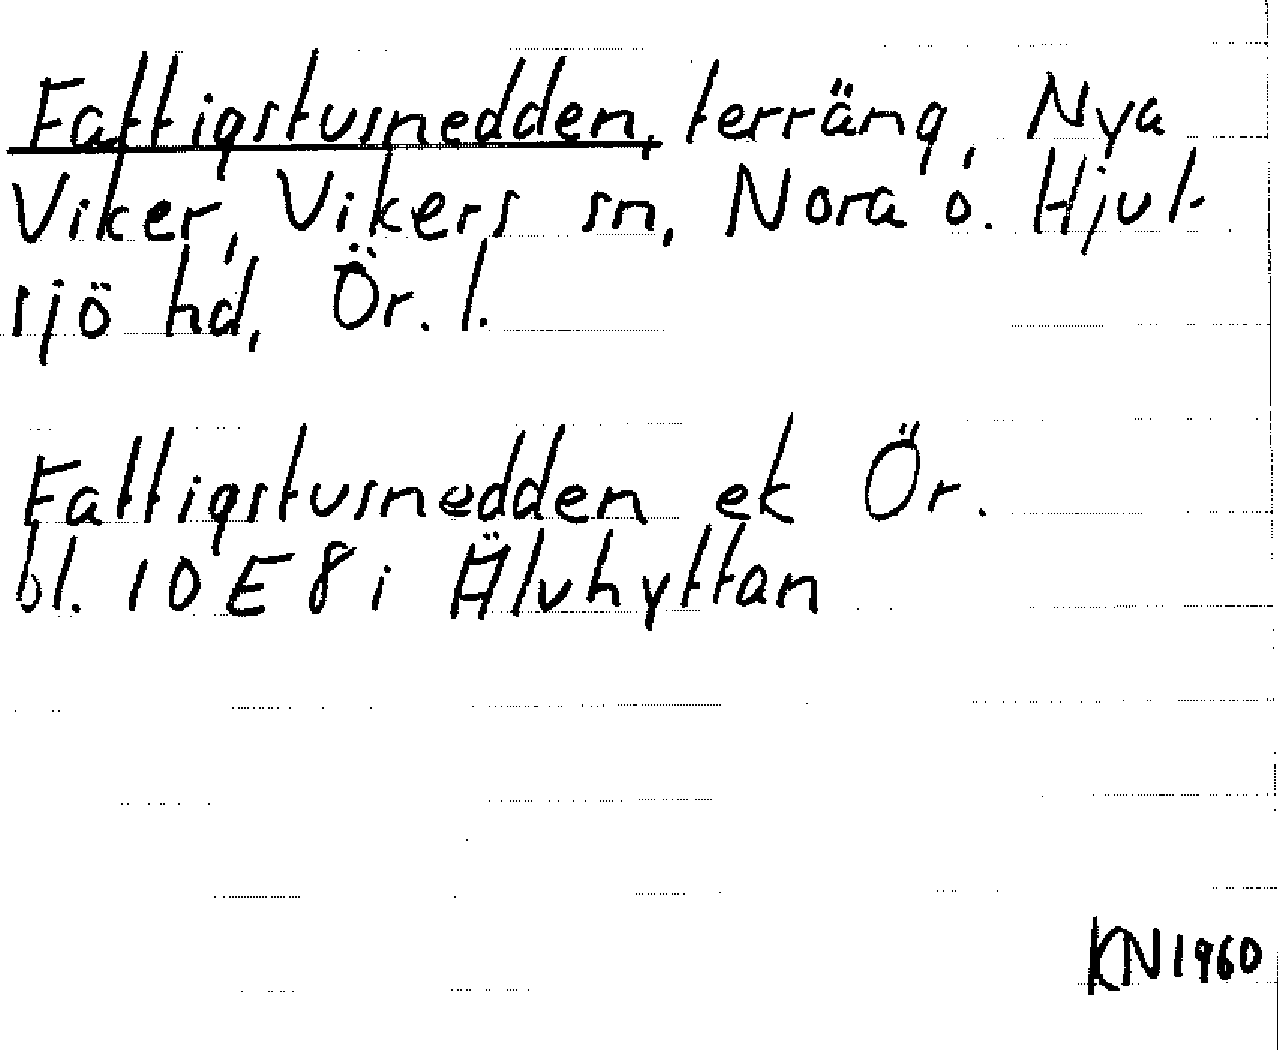 Fattigstusnedden, terräng, Nya
Viker, Vikers sn, Nora o. Hjul-
sjö hd, Ör. l.
Fattigstusnedden ek Ör.
bl. 10 E 8 i Älvhyttan
KN 1960